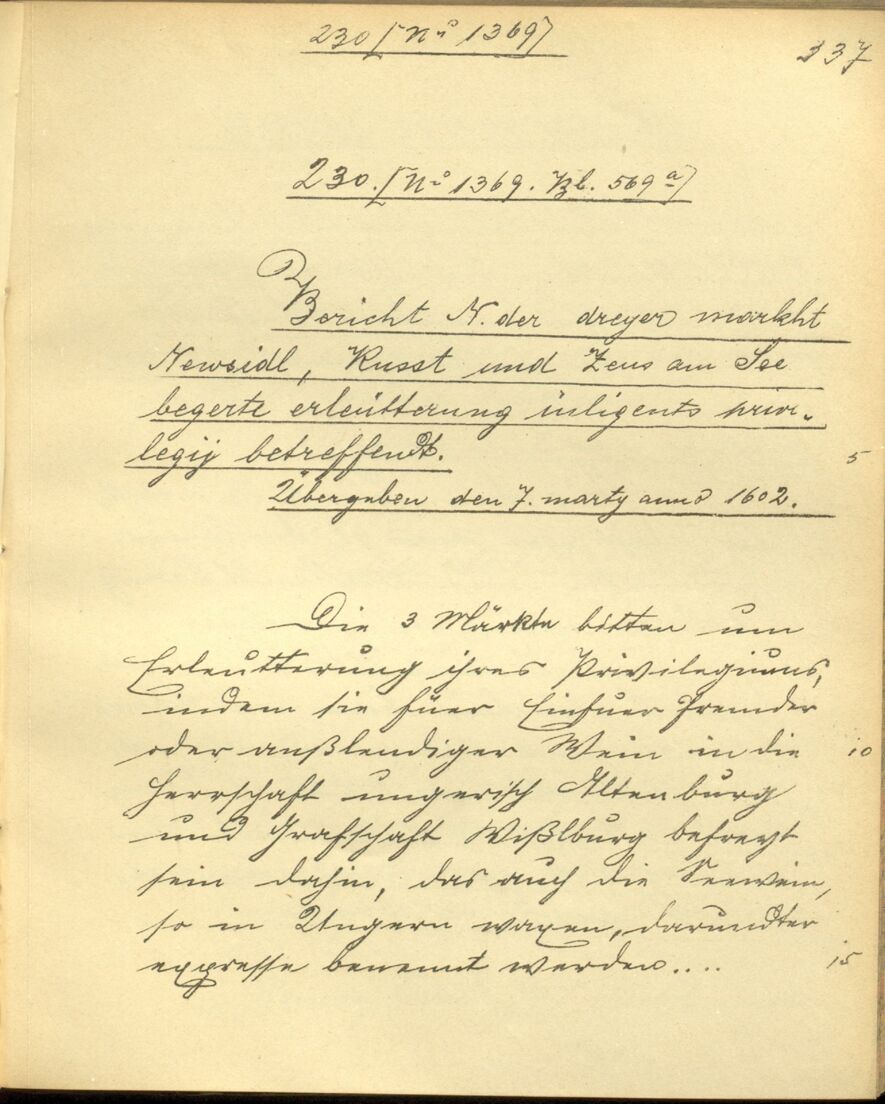 230 [No 1369]
337
230. [No 1369. Bl. 569a]
Bericht N. der dreyer markht
Newsidl, Russt und Zeus am See
begerte erleütterung inligents privi-
legij betreffendt. 5
Übergeben den 7. marty anno 1602.
Die 3 Märkte bitten um
Erleutterung ihres Privilegiums,
indem sie fuer Einfuer fremder
oder außlendiger Wein in die 10
Herrschaft ungerisch Altenburg
und Grafschaft Wißlburg befreyt
sein dahin, das auch die Seewein,
so in Ungern waxen, darundter
expresse benennt werden.... 15